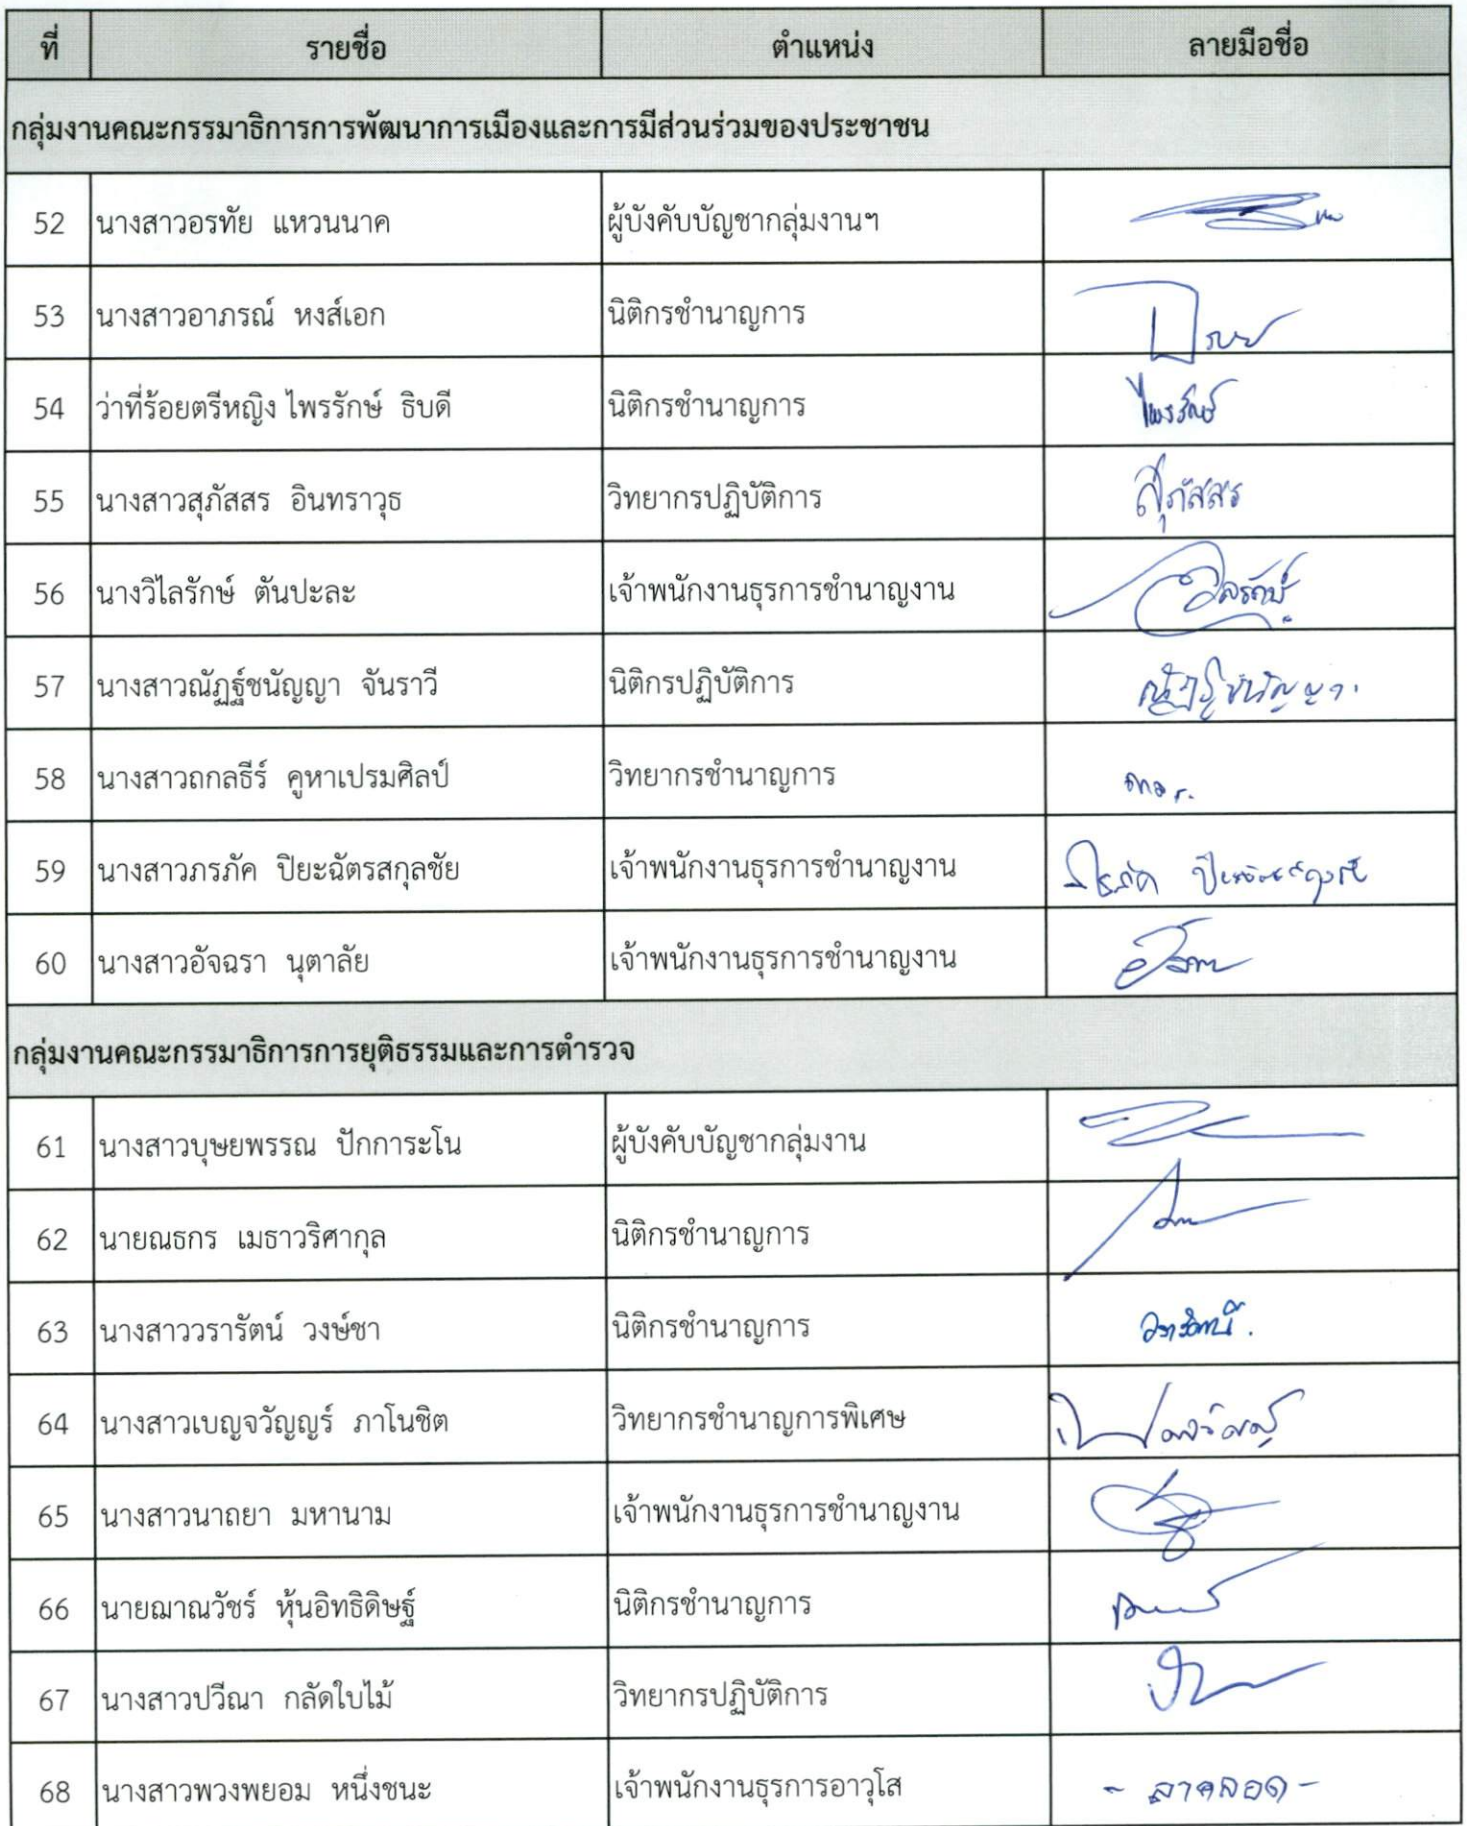 ที่ รายชื่อ ตำแหน่ง ลายมือชื่อ
กลุ่มงานคณะกรรมาธิการการพัฒนาการเมืองและการมีส่วนร่วมของประชาชน
52 นางสาวอรทัย แหวนนาค ผู้บังคับบัญชากลุ่มงานฯ
53 นางสาวอาภรณ์ หงส์เอก นิติกรชำนาญการ
54 ว่าที่ร้อยตรีหญิง ไพรรักษ์ ธิบดี นิติกรชำนาญการ ไพรรักษ์
55 นางสาวสุภัสสร อินทราวุธ วิทยากรปฏิบัติการ สุภัสสร
56 นางวิไลรักษ์ ตันปะละ เจ้าพนักงานธุรการชำนาญงาน
57 นางสาวณัฏฐ์ชนัญญา จันราวี นิติกรปฏิบัติการ ณัฏฐ์ชนัญญา
58 นางสาวถกลธีร์ คูหาเปรมศิลป์ วิทยากรชำนาญการ
59 นางสาวภรภัค ปิยะฉัตรสกุลชัย เจ้าพนักงานธุรการชำนาญงาน ภรภัค ปิยะฉัตรสกุลชัย
60 นางสาวอัจฉรา นุตาลัย เจ้าพนักงานธุรการชำนาญงาน
กลุ่มงานคณะกรรมาธิการการยุติธรรมและการตำรวจ
61 นางสาวบุษยพรรณ ปักการะโน ผู้บังคับบัญชากลุ่มงาน
62 นายณธกร เมธาวริศากุล นิติกรชำนาญการ
63 นางสาววรารัตน์ วงษ์ชา นิติกรชำนาญการ วรารัตน์.
64 นางสาวเบญจวัญญร์ ภาโนชิต วิทยากรชำนาญการพิเศษ
65 นางสาวนาถยา มหานาม เจ้าพนักงานธุรการชำนาญงาน
66 นายฌาณวัชร์ หุ้นอิทธิดิษฐ์ นิติกรชำนาญการ
67 นางสาวปวีณา กลัดใบไม้ วิทยากรปฏิบัติการ
68 นางสาวพวงพยอม หนึ่งชนะ เจ้าพนักงานธุรการอาวุโส - ลาคลอด -